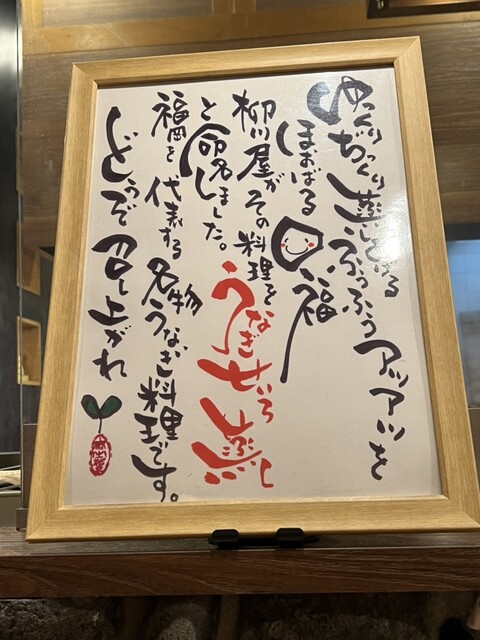 ゆっくりじっくり蒸しあげる
ふっふうアツアツを
ほおばる口福
柳川屋がその料理を
うなぎせいろ蒸し
と命名しました。
福岡を代表する名物
うなぎ料理です。
どうぞ召し上がれ